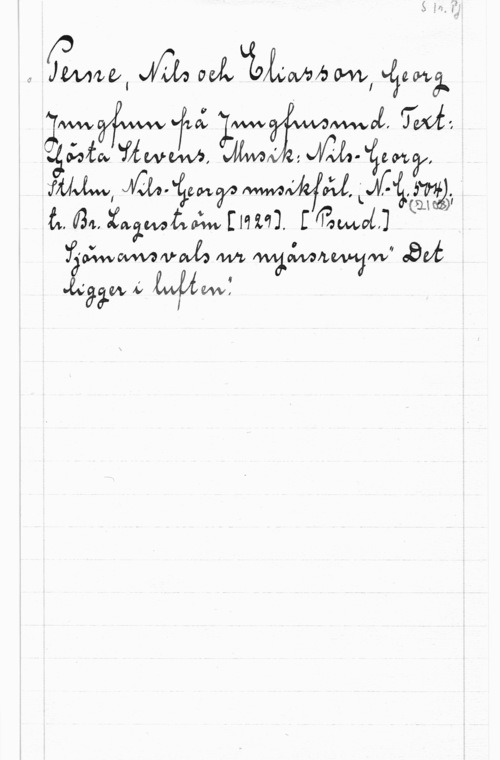 S 1r. Pf
Perne, Nils och Eliasson, Georg
Jungfrun på Jungfrusund. Text:
Gösta Stevens. Musik: Nils-Georg.
Sthlm, Nils-Georgs musikförl. (N.-G. 504).
(2103)
tr. Br. Lagerström [1929]. [Pseud.]
Sjömansvals ur nyårsrevyn "Det
ligger i luften".